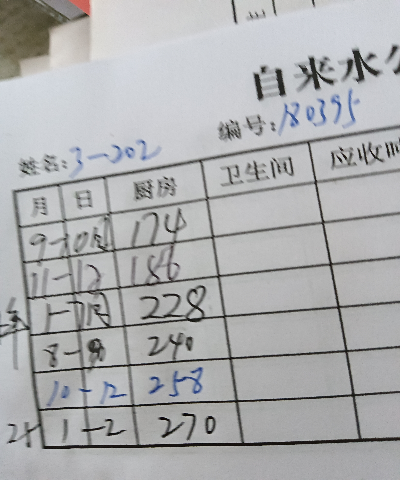 自来水公
编号:180395
姓名:3-202
月 日 厨房 卫生间 应收
9-10月 174
11-12 186
1-7月 228
8-9 240
10-12 258
1-2 270